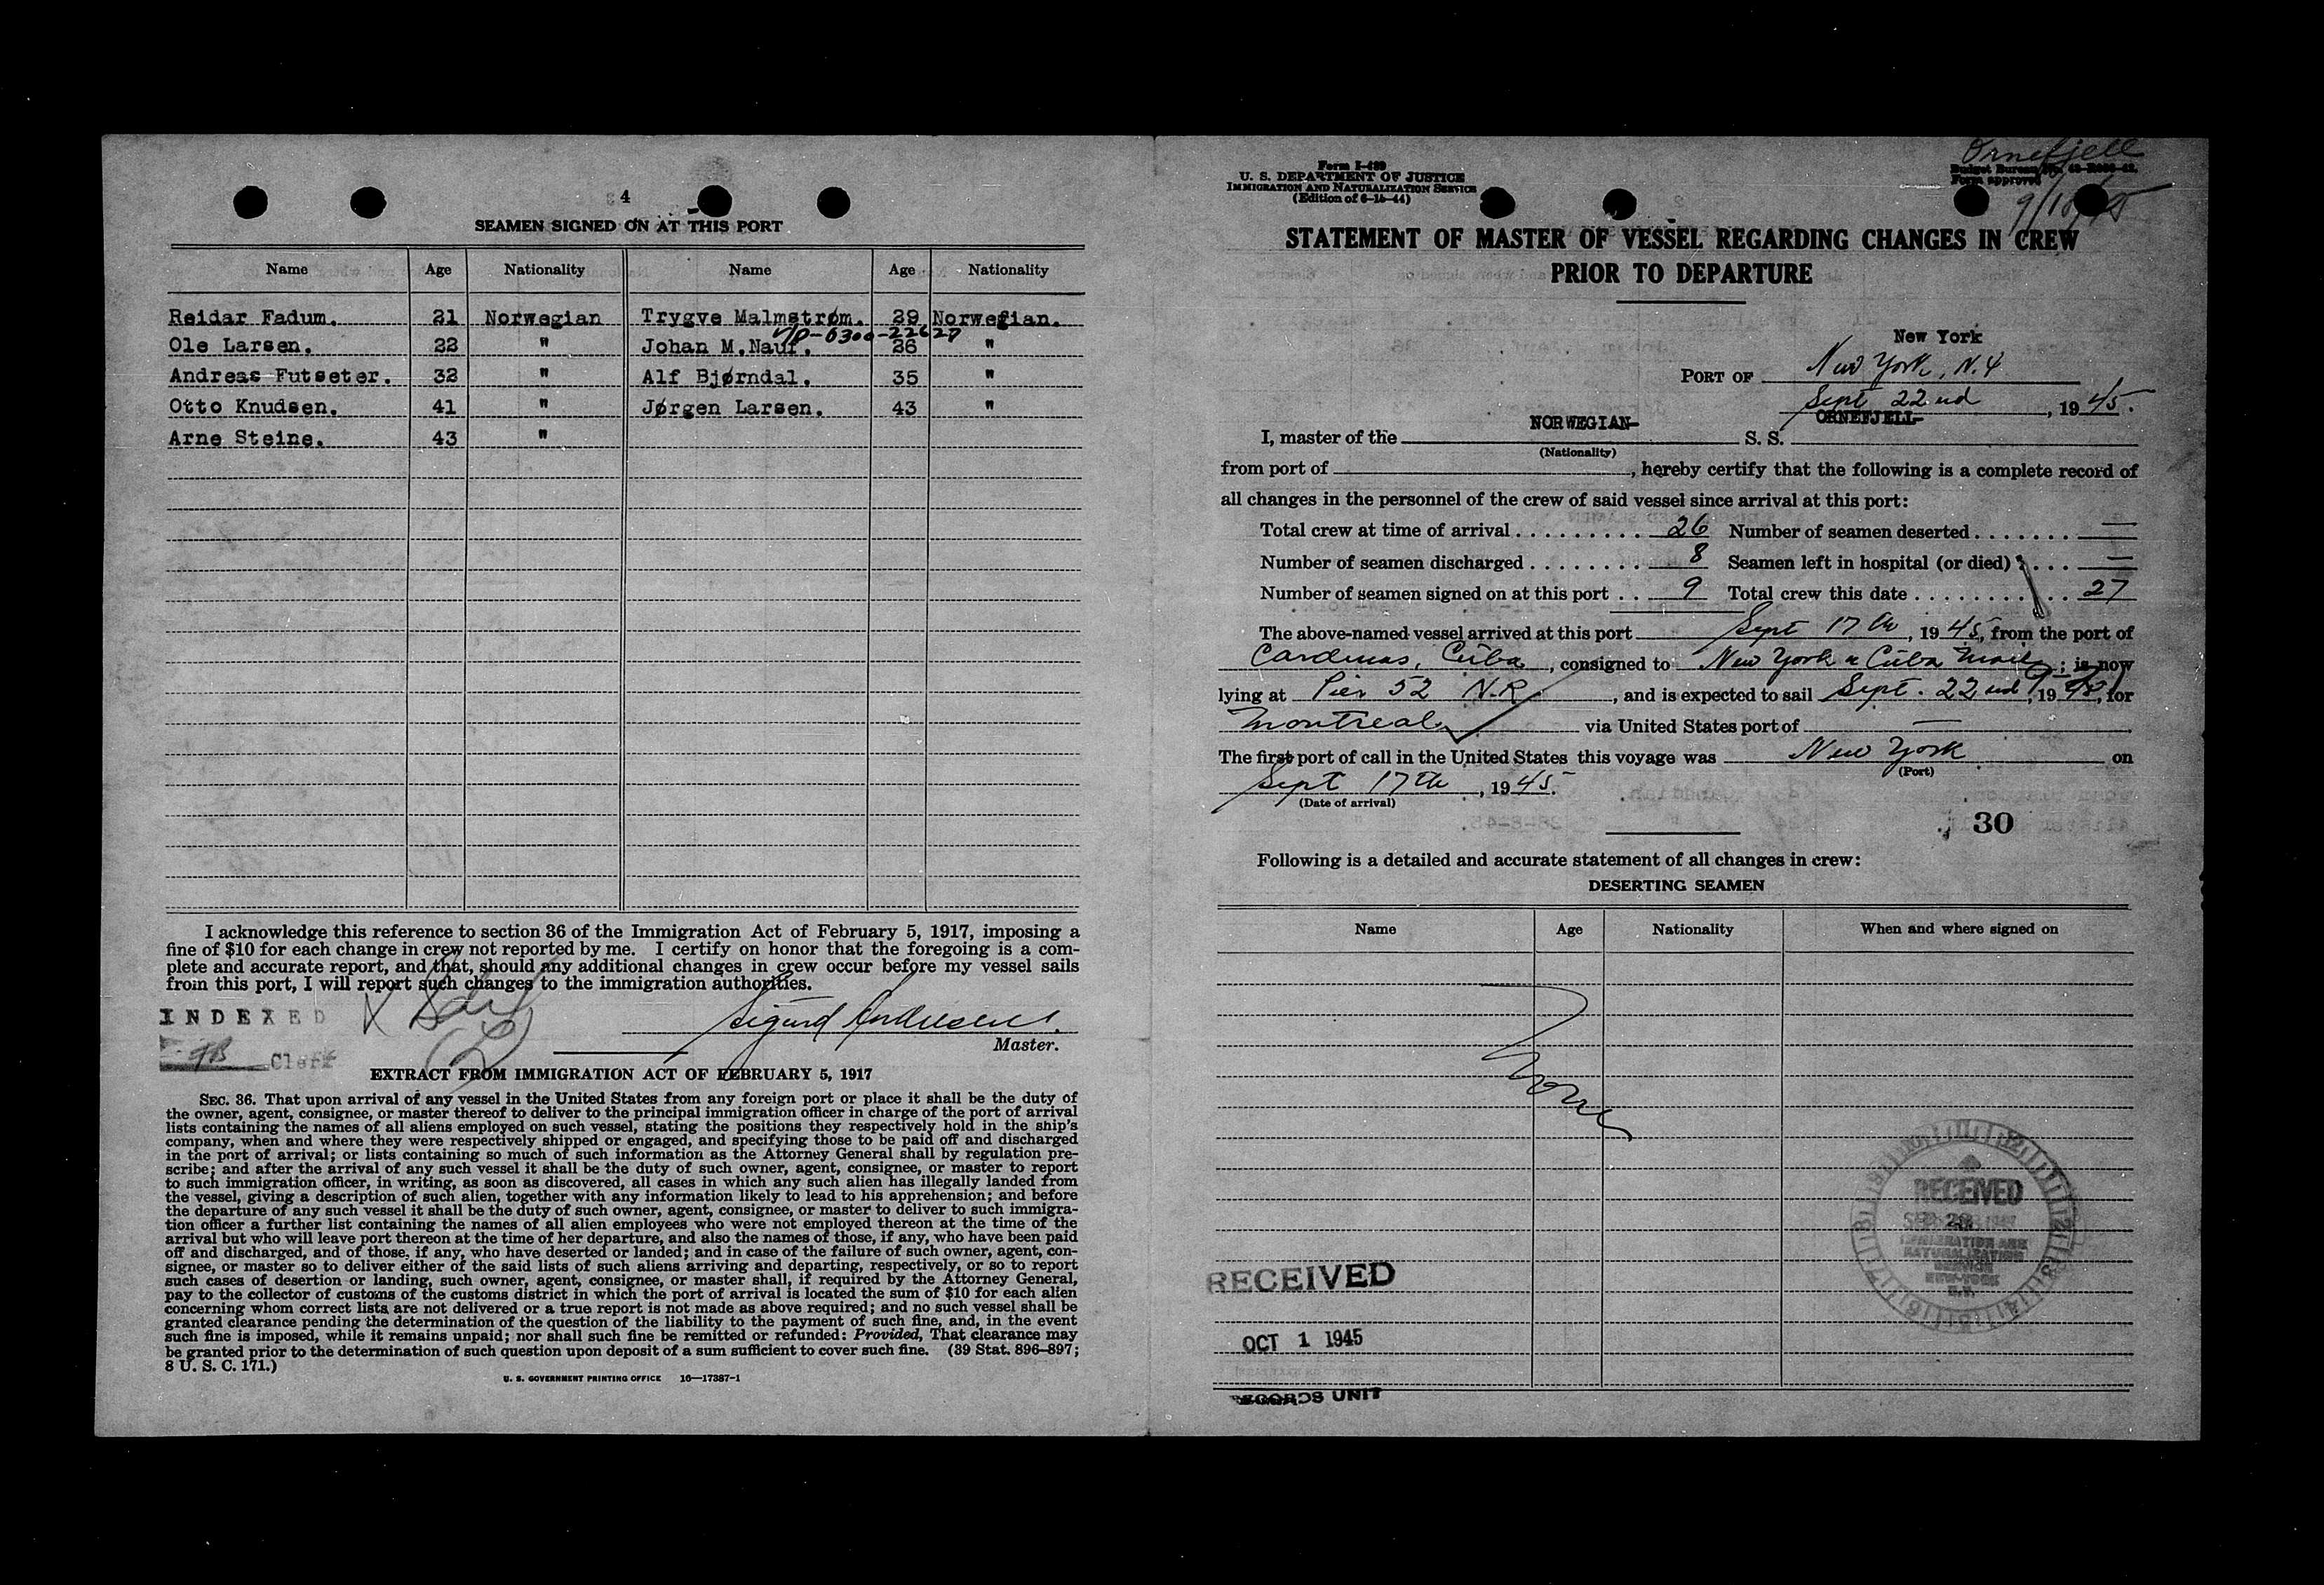 4
SEAMEN SIGNED ON AT THIS PORT
Name Age Nationality Name Age Nationality
Reidar Fadum. 21 Norwegian Trygve Malmstrøm. 29 Norwegian.
Ole Larsen. 22 " Johan M.Nauf. 26 "
Andreas Futseter. 32 " Alf Bjørndal. 35 "
Otto Knudsen. 41 " Jørgen Larsen. 43 "
Arne Steine. 43 "
I acknowledge this reference to section 36 of the Immigration Act of February 5, 1917, imposing a
fine of $10 for each change in crew not reported by me. I certify on honor that the foregoing is a com-
plete and accurate report, and that, should any additional changes in crew occur before my vessel sails
from this port, I will report such changes to the immigration authorities.
INDEXED
Clerk
Sigurd Andresen.
Master.
EXTRACT FROM IMMIGRATION ACT OF FEBRUARY 5, 1917
SEC. 36. That upon arrival of any vessel in the United States from any foreign port or place it shall be the duty of
the owner, agent, consignee, or master thereof to deliver to the principal immigration officer in charge of the port of arrival
lists containing the names of all aliens employed on such vessel, stating the positions they respectively hold in the ship's
company, when and where they were respectively shipped or engaged, and specifying those to be paid off and discharged
in the port of arrival; or lists containing so much of such information as the Attorney General shall by regulation pre-
scribe; and after the arrival of any such vessel it shall be the duty of such owner, agent, consignee, or master to report
to such immigration officer, in writing, as soon as discovered, all cases in which any such alien has illegally landed from
the vessel, giving a description of such alien, together with any information likely to lead to his apprehension; and before
the departure of any such vessel it shall be the duty of such owner, agent, consignee, or master to deliver to such immigra-
tion officer a further list containing the names of all alien employees who were not employed thereon at the time of the
arrival but who will leave port thereon at the time of her departure, and also the names of those, if any, who have been paid
off and discharged, and of those, if any, who have deserted or landed; and in case of the failure of such owner, agent, con-
signee, or master so to deliver either of the said lists of such aliens arriving and departing, respectively, or so to report
such cases of desertion or landing, such owner, agent, consignee, or master shall, if required by the Attorney General,
pay to the collector of customs of the customs district in which the port of arrival is located the sum of $10 for each alien
concerning whom correct lists are not delivered or a true report is not made as above required; and no such vessel shall be
granted clearance pending the determination of the question of the liability to the payment of such fine, and, in the event
such fine is imposed, while it remains unpaid; nor shall such fine be remitted or refunded: Provided, That clearance may
be granted prior to the determination of such question upon deposit of a sum sufficient to cover such fine. (39 Stat. 896–897;
8 U. S. C. 171.)
U. S. GOVERNMENT PRINTING OFFICE 16—17387-1
Ornefjell
Form I-489
U. S. DEPARTMENT OF JUSTICE
IMMIGRATION AND NATURALIZATION SERVICE
(Edition of 6-15-44)
Budget Bureau No.
Form approved
STATEMENT OF MASTER OF VESSEL REGARDING CHANGES IN CREW
PRIOR TO DEPARTURE
New York
PORT OF New York, N.Y
Sept 22nd, 1945.
NORWEGIAN- ORNEFJELL-
I, master of the S. S.
(Nationality)
from port of , hereby certify that the following is a complete record of
all changes in the personnel of the crew of said vessel since arrival at this port:
Total crew at time of arrival 26 Number of seamen deserted —
Number of seamen discharged 8 Seamen left in hospital (or died) —
Number of seamen signed on at this port 9 Total crew this date 27
The above-named vessel arrived at this port Sept 17th, 1945, from the port of
Cardenas, Cuba, consigned to New York & Cuba Mail; is now
lying at Pier 52 N.R., and is expected to sail Sept. 22nd, 19 , for
Montreal via United States port of —
The first port of call in the United States this voyage was New York on
(Port)
Sept 17th, 1945.
(Date of arrival)
30
Following is a detailed and accurate statement of all changes in crew:
DESERTING SEAMEN
Name Age Nationality When and where signed on
None
RECEIVED
IMMIGRATION AND
NATURALIZATION
SERVICE
NEW YORK
N.Y.
RECEIVED
OCT 1 1945
RECORDS UNIT